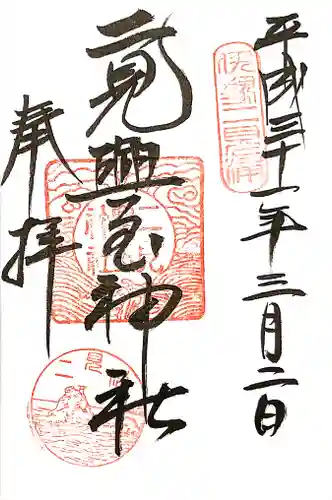 平成三十一年三月二日
伊勢二見浦
二見興玉神社
奉拝
二見